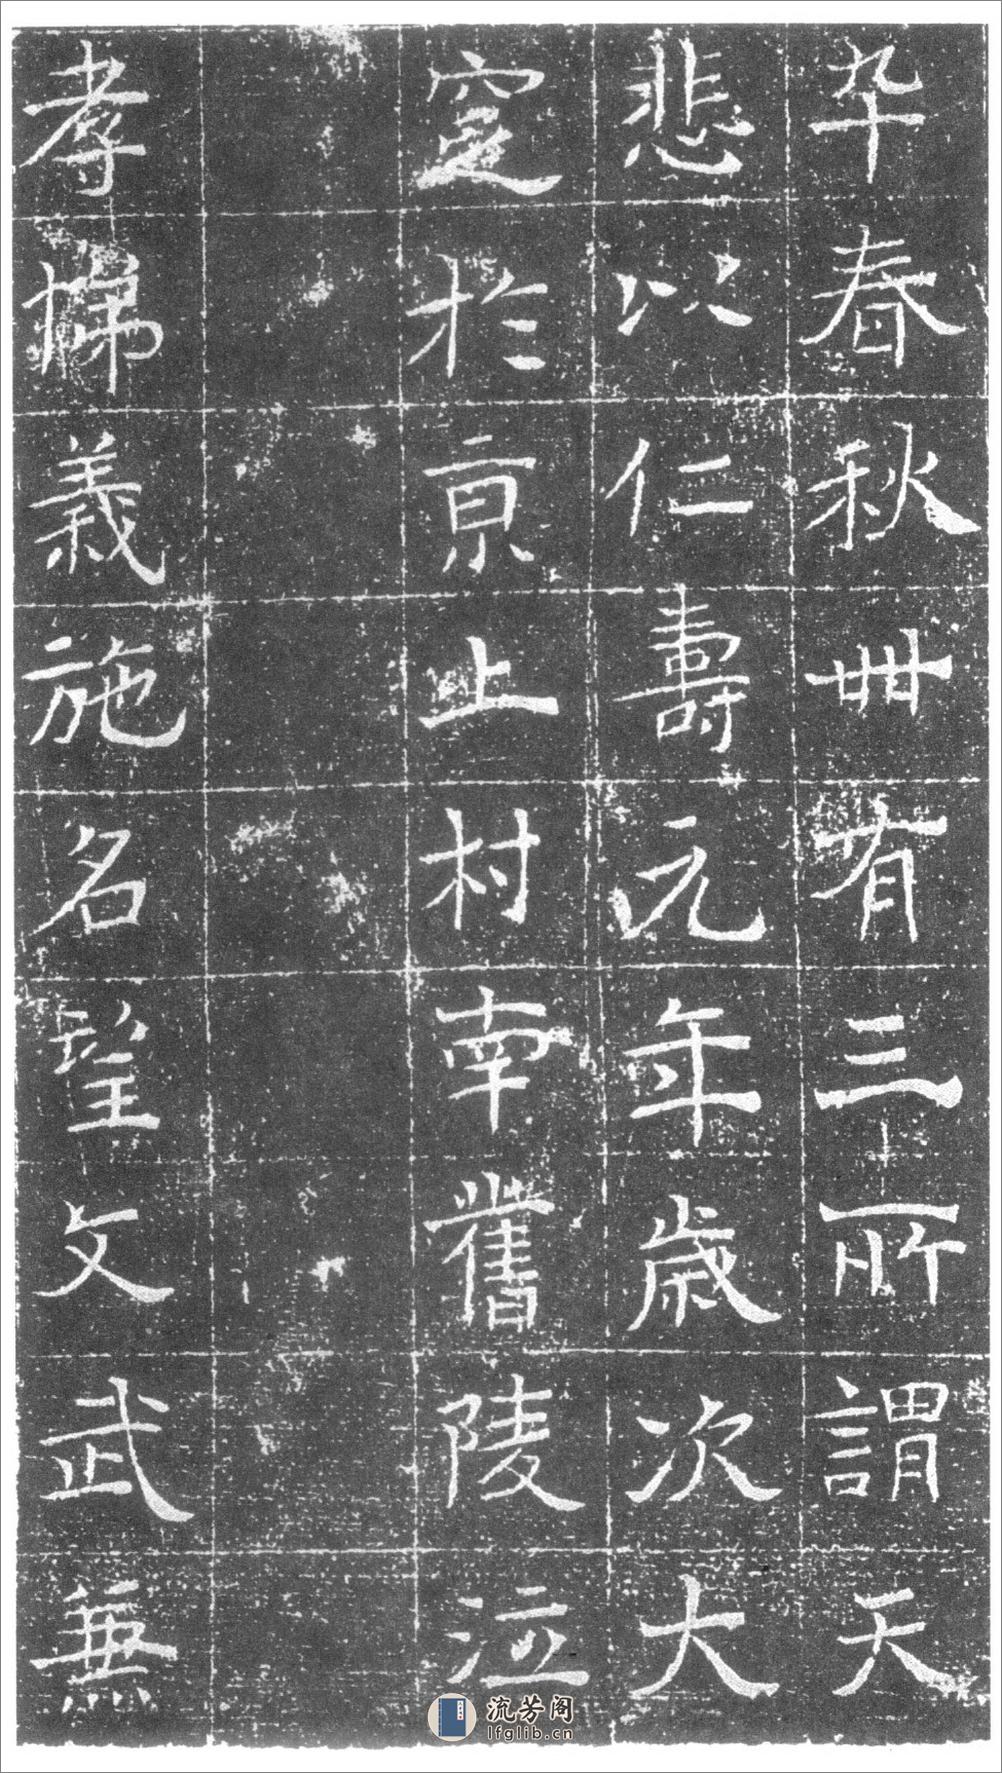 卒春秋卌有三所謂天
悲以仁壽元年歲次大
窆於京上村南舊陵涖
孝悌義施名望文武兼
流芳阁
lfglib.cn